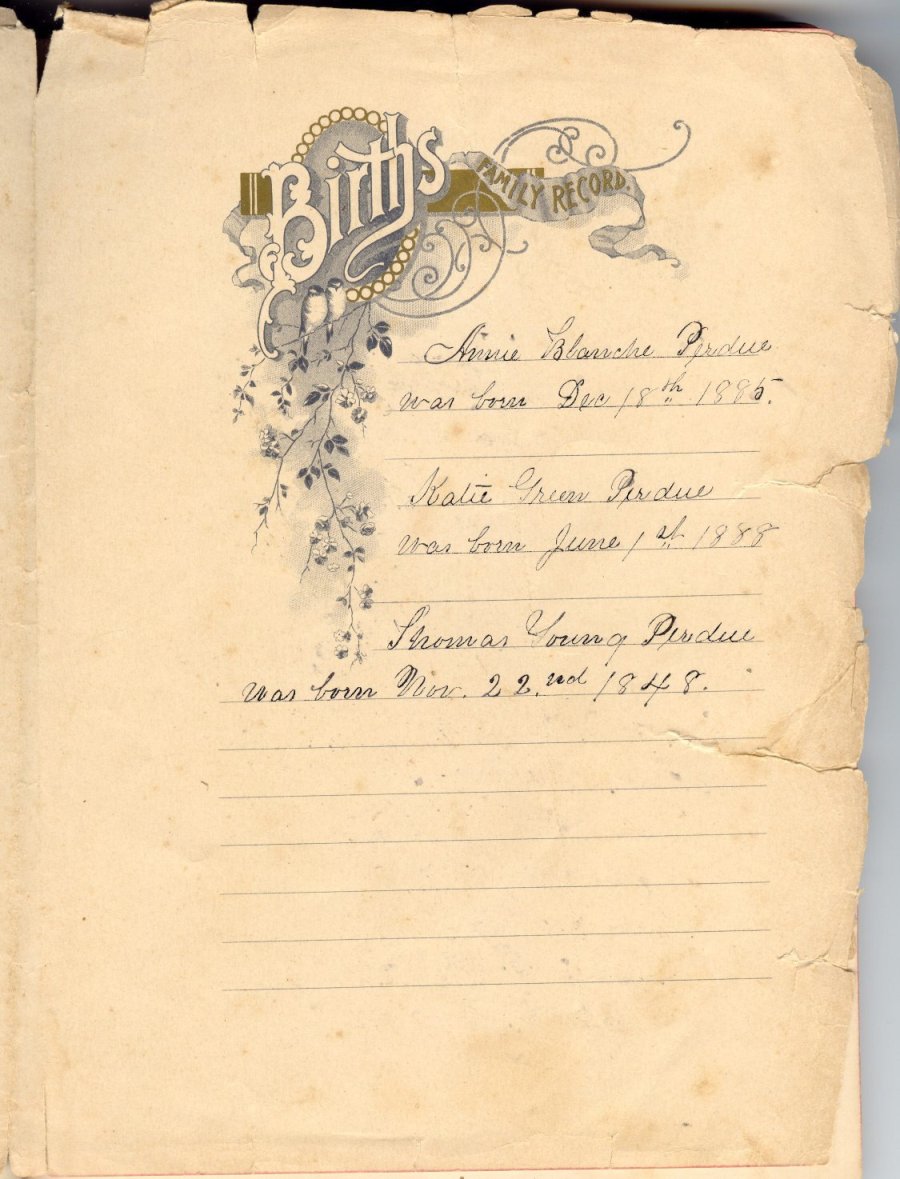 Births
FAMILY RECORD.
Annie Blanche Perdue
was born Dec 18th 1885.
Katie Green Perdue
was born June 1st 1888
Thomas Young Perdue
was born Nov. 22.nd 1848.